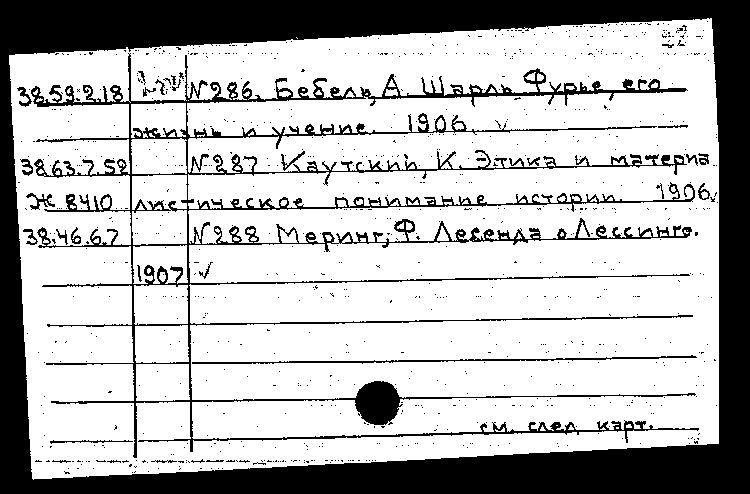 22
38.59.2.18 №286. Бебель, А. Шарль Фурье, его
жизнь и учение. 1906. ✓
38.63.7.52 №287 Каутский, К. Этика и материа
Ж 8410 листическое понимание истории. 1906 ✓
38.46.6.7 №288 Меринг, Ф. Легенда о Лессинге.
1907 ✓
см. след. карт.